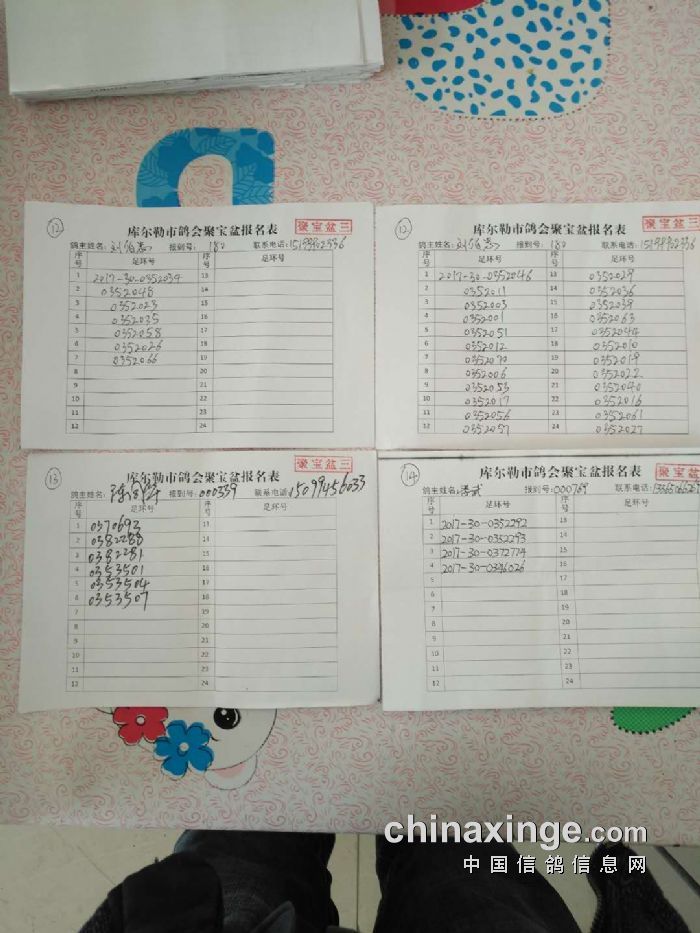 ⑫
库尔勒市鸽会聚宝盆报名表
聚宝盆三
鸽主姓名: 报到号: 180 联系电话:
序号 足环号 序号 足环号
1 2017-30-0352034 13
2 0352048 14
3 0352023 15
4 0352035 16
5 0352058 17
6 0352026 18
7 0352066 19
8 20
9 21
10 22
11 23
12 24
⑫
库尔勒市鸽会聚宝盆报名表
聚宝盆三
鸽主姓名: 报到号: 180 联系电话:
序号 足环号 序号 足环号
1 2017-30-0352046 13 0352029
2 0352011 14 0352036
3 0352003 15 0352039
4 0352001 16 0352063
5 0352051 17 0352044
6 0352012 18 0352010
7 0352070 19 0352019
8 0352006 20 0352022
9 0352053 21 0352040
10 0352017 22 0352016
11 0352056 23 0352061
12 0352057 24 0352027
⑬
库尔勒市鸽会聚宝盆报名表
聚宝盆三
鸽主姓名: 报到号: 000339 联系电话: 15099456033
序号 足环号 序号 足环号
1 0370693 13
2 0382288 14
3 0382281 15
4 0353501 16
5 0353504 17
6 0353507 18
7 19
8 20
9 21
10 22
11 23
12 24
⑭
库尔勒市鸽会聚宝盆报名表
聚宝盆三
鸽主姓名: 报到号: 000769 联系电话:
序号 足环号 序号 足环号
1 2017-30-0352292 13
2 2017-30-0352293 14
3 2017-30-0372774 15
4 2017-30-0346026 16
5 17
6 18
7 19
8 20
9 21
10 22
11 23
12 24
chinaxinge.com
中国信鸽信息网